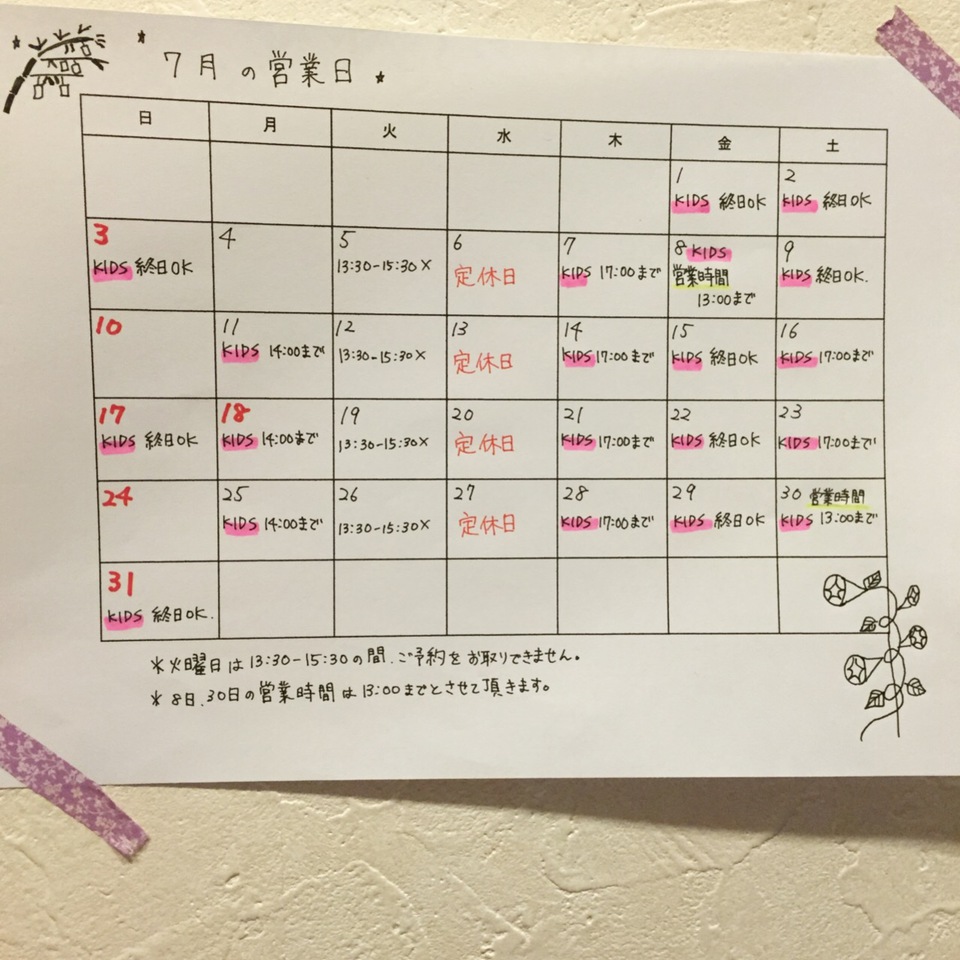 7月の営業日
日 月 火 水 木 金 土
1 2
KIDS 終日OK KIDS 終日OK
3 4 5 6 7 8 KIDS 9
KIDS 終日OK 13:30-15:30× 定休日 KIDS 17:00まで 営業時間 KIDS 終日OK.
13:00まで
10 11 12 13 14 15 16
KIDS 14:00まで 13:30-15:30× 定休日 KIDS 17:00まで KIDS 終日OK KIDS 17:00まで
17 18 19 20 21 22 23
KIDS 終日OK KIDS 14:00まで 13:30-15:30× 定休日 KIDS 17:00まで KIDS 終日OK KIDS 17:00まで
24 25 26 27 28 29 30 営業時間
KIDS 14:00まで 13:30-15:30× 定休日 KIDS 17:00まで KIDS 終日OK KIDS 13:00まで
31
KIDS 終日OK.
*火曜日は13:30-15:30の間、ご予約をお取りできません。
*8日、30日の営業時間は13:00までとさせて頂きます。